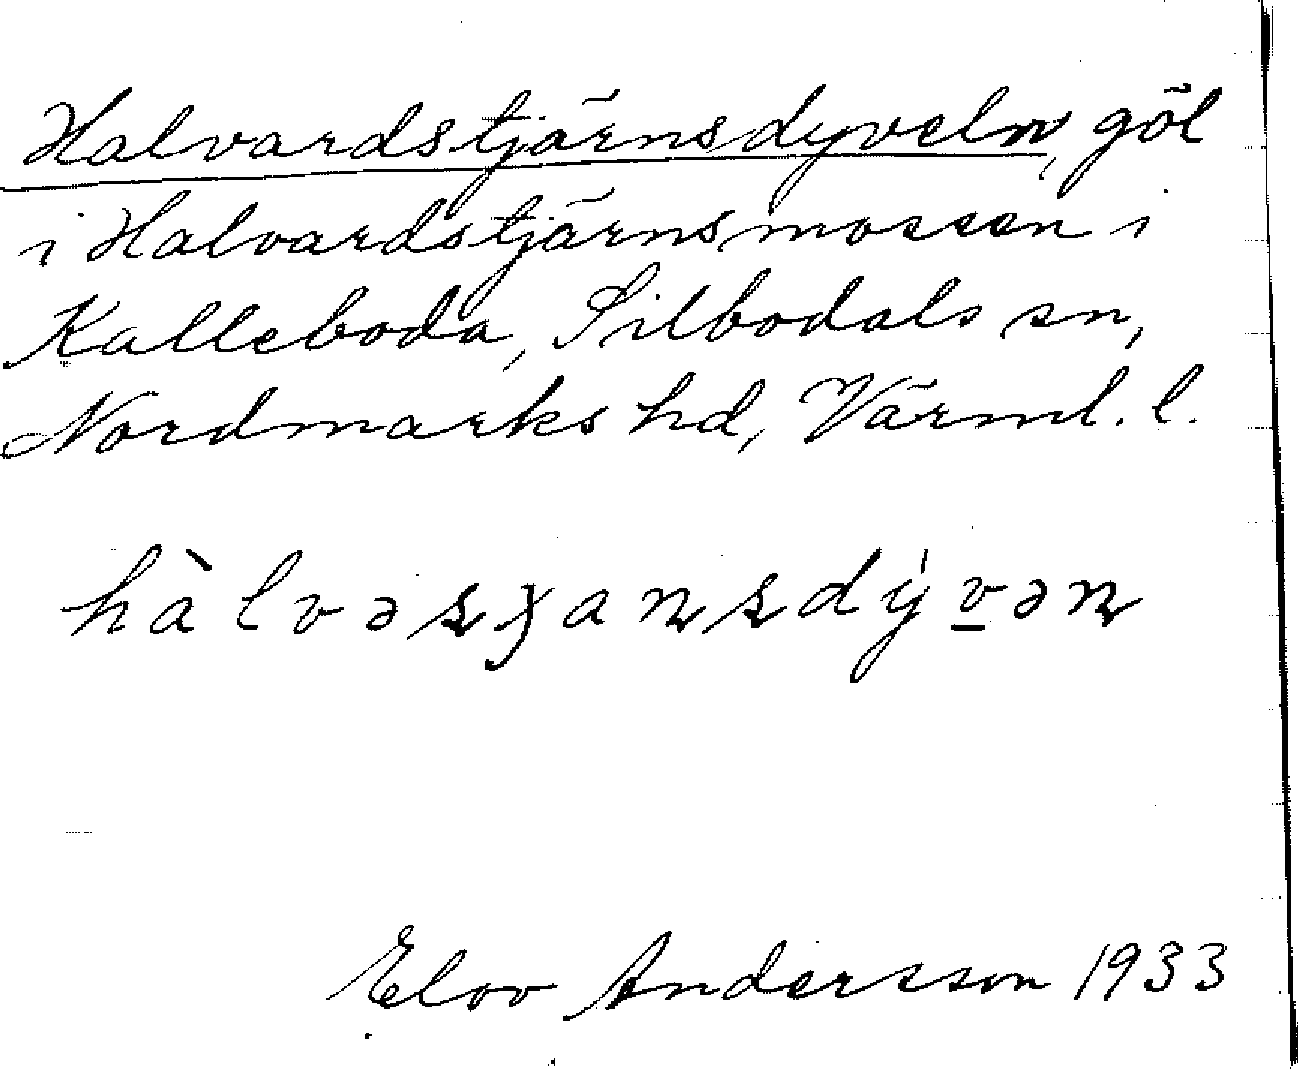 Halvardstjärnsdyveln, göl
i Halvardstjärnsmossen i
Kalleboda, Silbodals sn,
Nordmarks hd, Värml. l.
Elov Andersson 1933